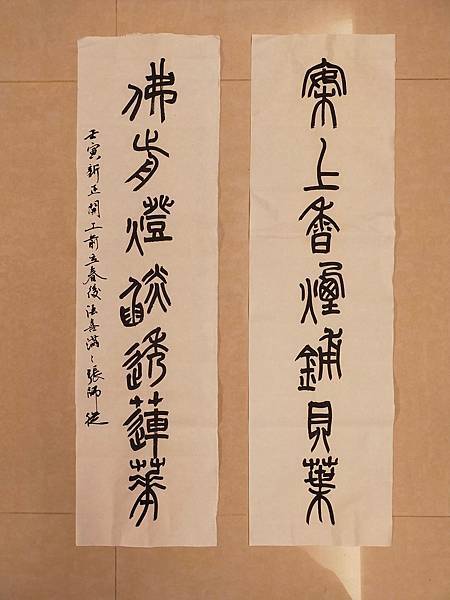 案上香煙鋪貝葉
佛前燈燄透蓮華
壬寅新正開工前立春後法喜滿〻張師從